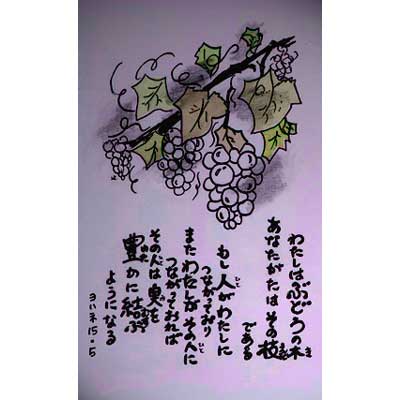 わたしはぶどうの木
あなたがたはその枝
である
もし人がわたしに
つながっており
またわたしがその人に
つながっておれば
その人は実を
豊かに結ぶ
ようになる
ヨハネ15・5